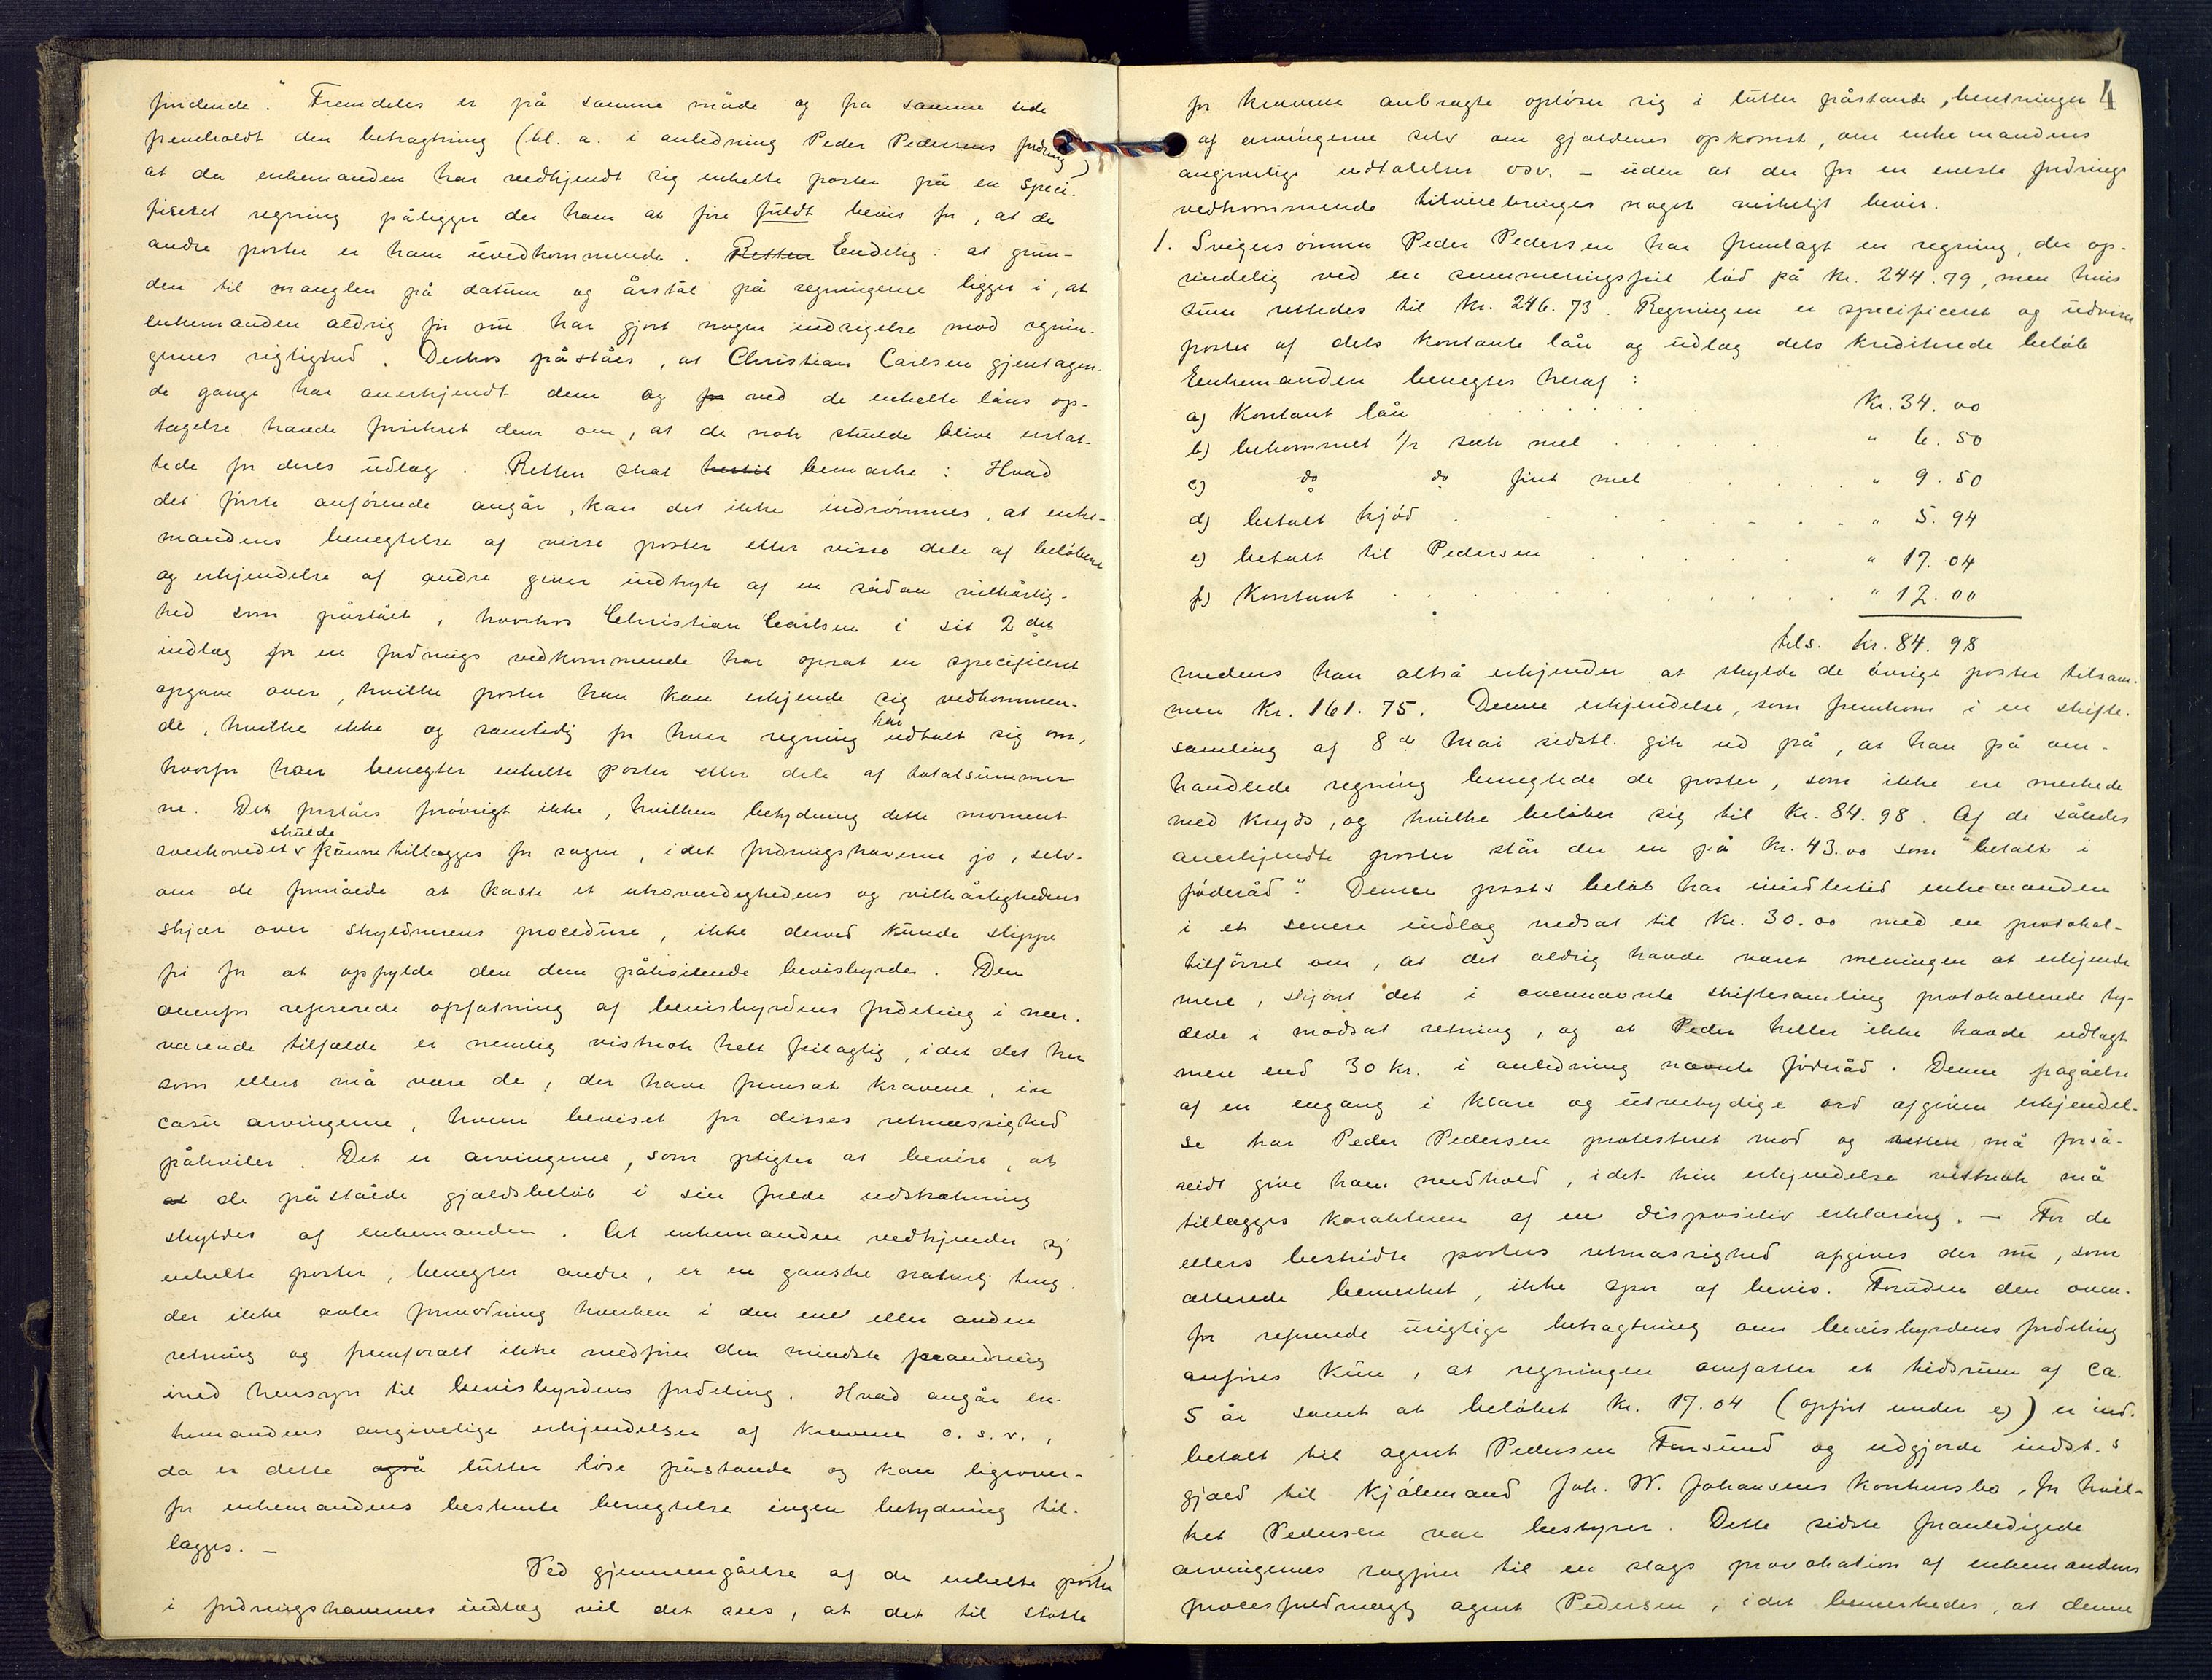 findende." Fremdeles er på samme måde og fra samme side
fremholdt den betragtning (bl. a. i anledning Peder Pedersens fordring)
at da enkemanden har vedkjendt sig enkelte poster på en speci-
ficeret regning påligger der ham at føre fuldt bevis for, at de
andre poster er ham uvedkommende. Retten Endelig: at grun-
den til manglen på datum og årstal på regningerne ligger i, at
enkemanden aldrig før nu har gjort nogen indsigelse mod regnin-
gernes rigtighed. Derhos påståes, at Christian Carlsen gjentagen-
de gange har anerkjendt dem og for ved de enkelte låns op-
tagelse havde forsikret dem om, at de nok skulde blive erstat-
tede for deres udlæg. Retten skal hertil bemærke: Hvad
det første anførende angår, kan det ikke indrømmes, at enke-
mandens benegtelse af visse poster eller visse dele af beløbene
og erkjendelse af andre giver indtryk af en sådan vilkårlig-
hed som påstået, hvorhos Christian Carlsen i sit 2det
indlæg for en fordrings vedkommende har opsat en specificeret
opgave over, hvilke poster han kan erkjende sig vedkommen-
de, hvilke ikke og samtidig for hver regning har udtalt sig om,
hvorfor han benegter enkelte poster eller dele af totalsummer-
ne. Det forståes forøvrigt ikke, hvilken betydning dette moment
overhovedet skulde kunne tillægges for sagen, idet fordringshaverne jo, selv-
om de formåede at kaste et utroværdighedens og vilkårlighedens
skjær over skyldnerens procedure, ikke derved kunde slippe
fri for at opfylde den dem påhvilende bevisbyrde. Den
ovenfor refererede opfatning af bevisbyrdens fordeling i nær-
værende tilfælde er nemlig vistnok helt feilagtig, idet det her
som ellers må være de, der have fremsat kravene, in
casu arvingerne, hvem beviset for disses retmæssighed
påhviler. Det er arvingerne, som pligter at bevise, at
at de påståede gjældsbeløb i sin fulde udstrækning
skyldes af enkemanden. At enkemanden vedkjender sig
enkelte poster, benegter andre, er en ganske naturlig ting,
der ikke avler formodning hverken i den ene eller anden
retning og fremforalt ikke medfører den mindste forandring
med hensyn til bevisbyrdens fordeling. Hvad angår en-
kemandens angivelige erkjendelser af kravene o. s. v.,
da er dette også lutter løse påstande og kan ligeover-
for enkemandens bestemte benegtelse ingen betydning til-
lægges. —
Ved gjennemgåelse af de enkelte poster
i fordringshavernes indlæg vil det sees, at det til støtte
4
for kravene anbragte opløser sig i lutter påstande, beretninger
af arvingerne selv om gjældens opkomst, om enkemandens
angivelige udtalelser osv. – uden at der for en eneste fordrings
vedkommende tilveiebringes noget virkeligt bevis.
1. Svigersønnen Peder Pedersen har fremlagt en regning, der op-
rindelig ved en summeringsfeil lød på kr. 244.79, men hvis
sum rettedes til kr. 246.73. Regningen er specificeret og udviser
poster af dels kontante lån og udlæg dels krediterede beløb
Enkemanden benegtes heraf:
a) Kontant lån . . . . . kr. 34.00
b) bekommet 1/2 sæk mel . . . . . " 6.50
c) do do fint mel . . . . . " 9.50
d) betalt kjød . . . . . " 5.94
e) betalt til Pedersen . . . . . " 17.04
f) Kontant . . . . . " 12.00
tils. kr. 84.98
medens han altså erkjender at skylde de øvrige poster tilsam-
men kr. 161.75. Denne erkjendelse, som fremkom i en skifte-
samling af 8de Mai sidstl. gik ud på, at han på om-
handlede regning benegtede de poster, som ikke ere merkede
med kryds, og hvilke beløber sig til kr. 84.98. Af de således
anerkjendte poster står der en på kr. 43.00 som "betalt i
føderåd". Denne posts beløb har imidlertid enkemanden
i et senere indlæg nedsat til kr. 30.00 med en protokol-
tilførsel om, at det aldrig havde været meningen at erkjende
mere, skjønt det i ovennævnte skiftesamling protokollerede ty-
dede i modsat retning, og at Peder heller ikke havde udlagt
mere end 30 kr. i anledning nævnte føderåd. Denne fragåelse
af en engang i klare og utvetydige ord afgiven erkjendel-
se har Peder Pedersen protesteret mod og retten må forså-
vidt give ham medhold, idet hin erkjendelse vistnok må
tillægges karakteren af en dispositiv erklæring. – For de
ellers bestridte posters retmæssighed afgives der nu, som
allerede bemerket, ikke spor af bevis. Foruden den oven-
for refererede urigtige betragtning om bevisbyrdens fordeling
anføres kun, at regningen omfatter et tidsrum af ca.
5 år samt at beløbet kr. 17.04 (opført under e)) er ind-
betalt til agent Pedersen Farsund og udgjorde indst.s
gjæld til kjøbmand Joh. W. Johansens konkursbo, for hvil-
ket Pedersen var bestyrer. Dette sidste foranledigede
arvingernes sagfører til en slags provokation af enkemandens
procesfuldmægtig agent Pedersen, idet bemerkedes, at denne